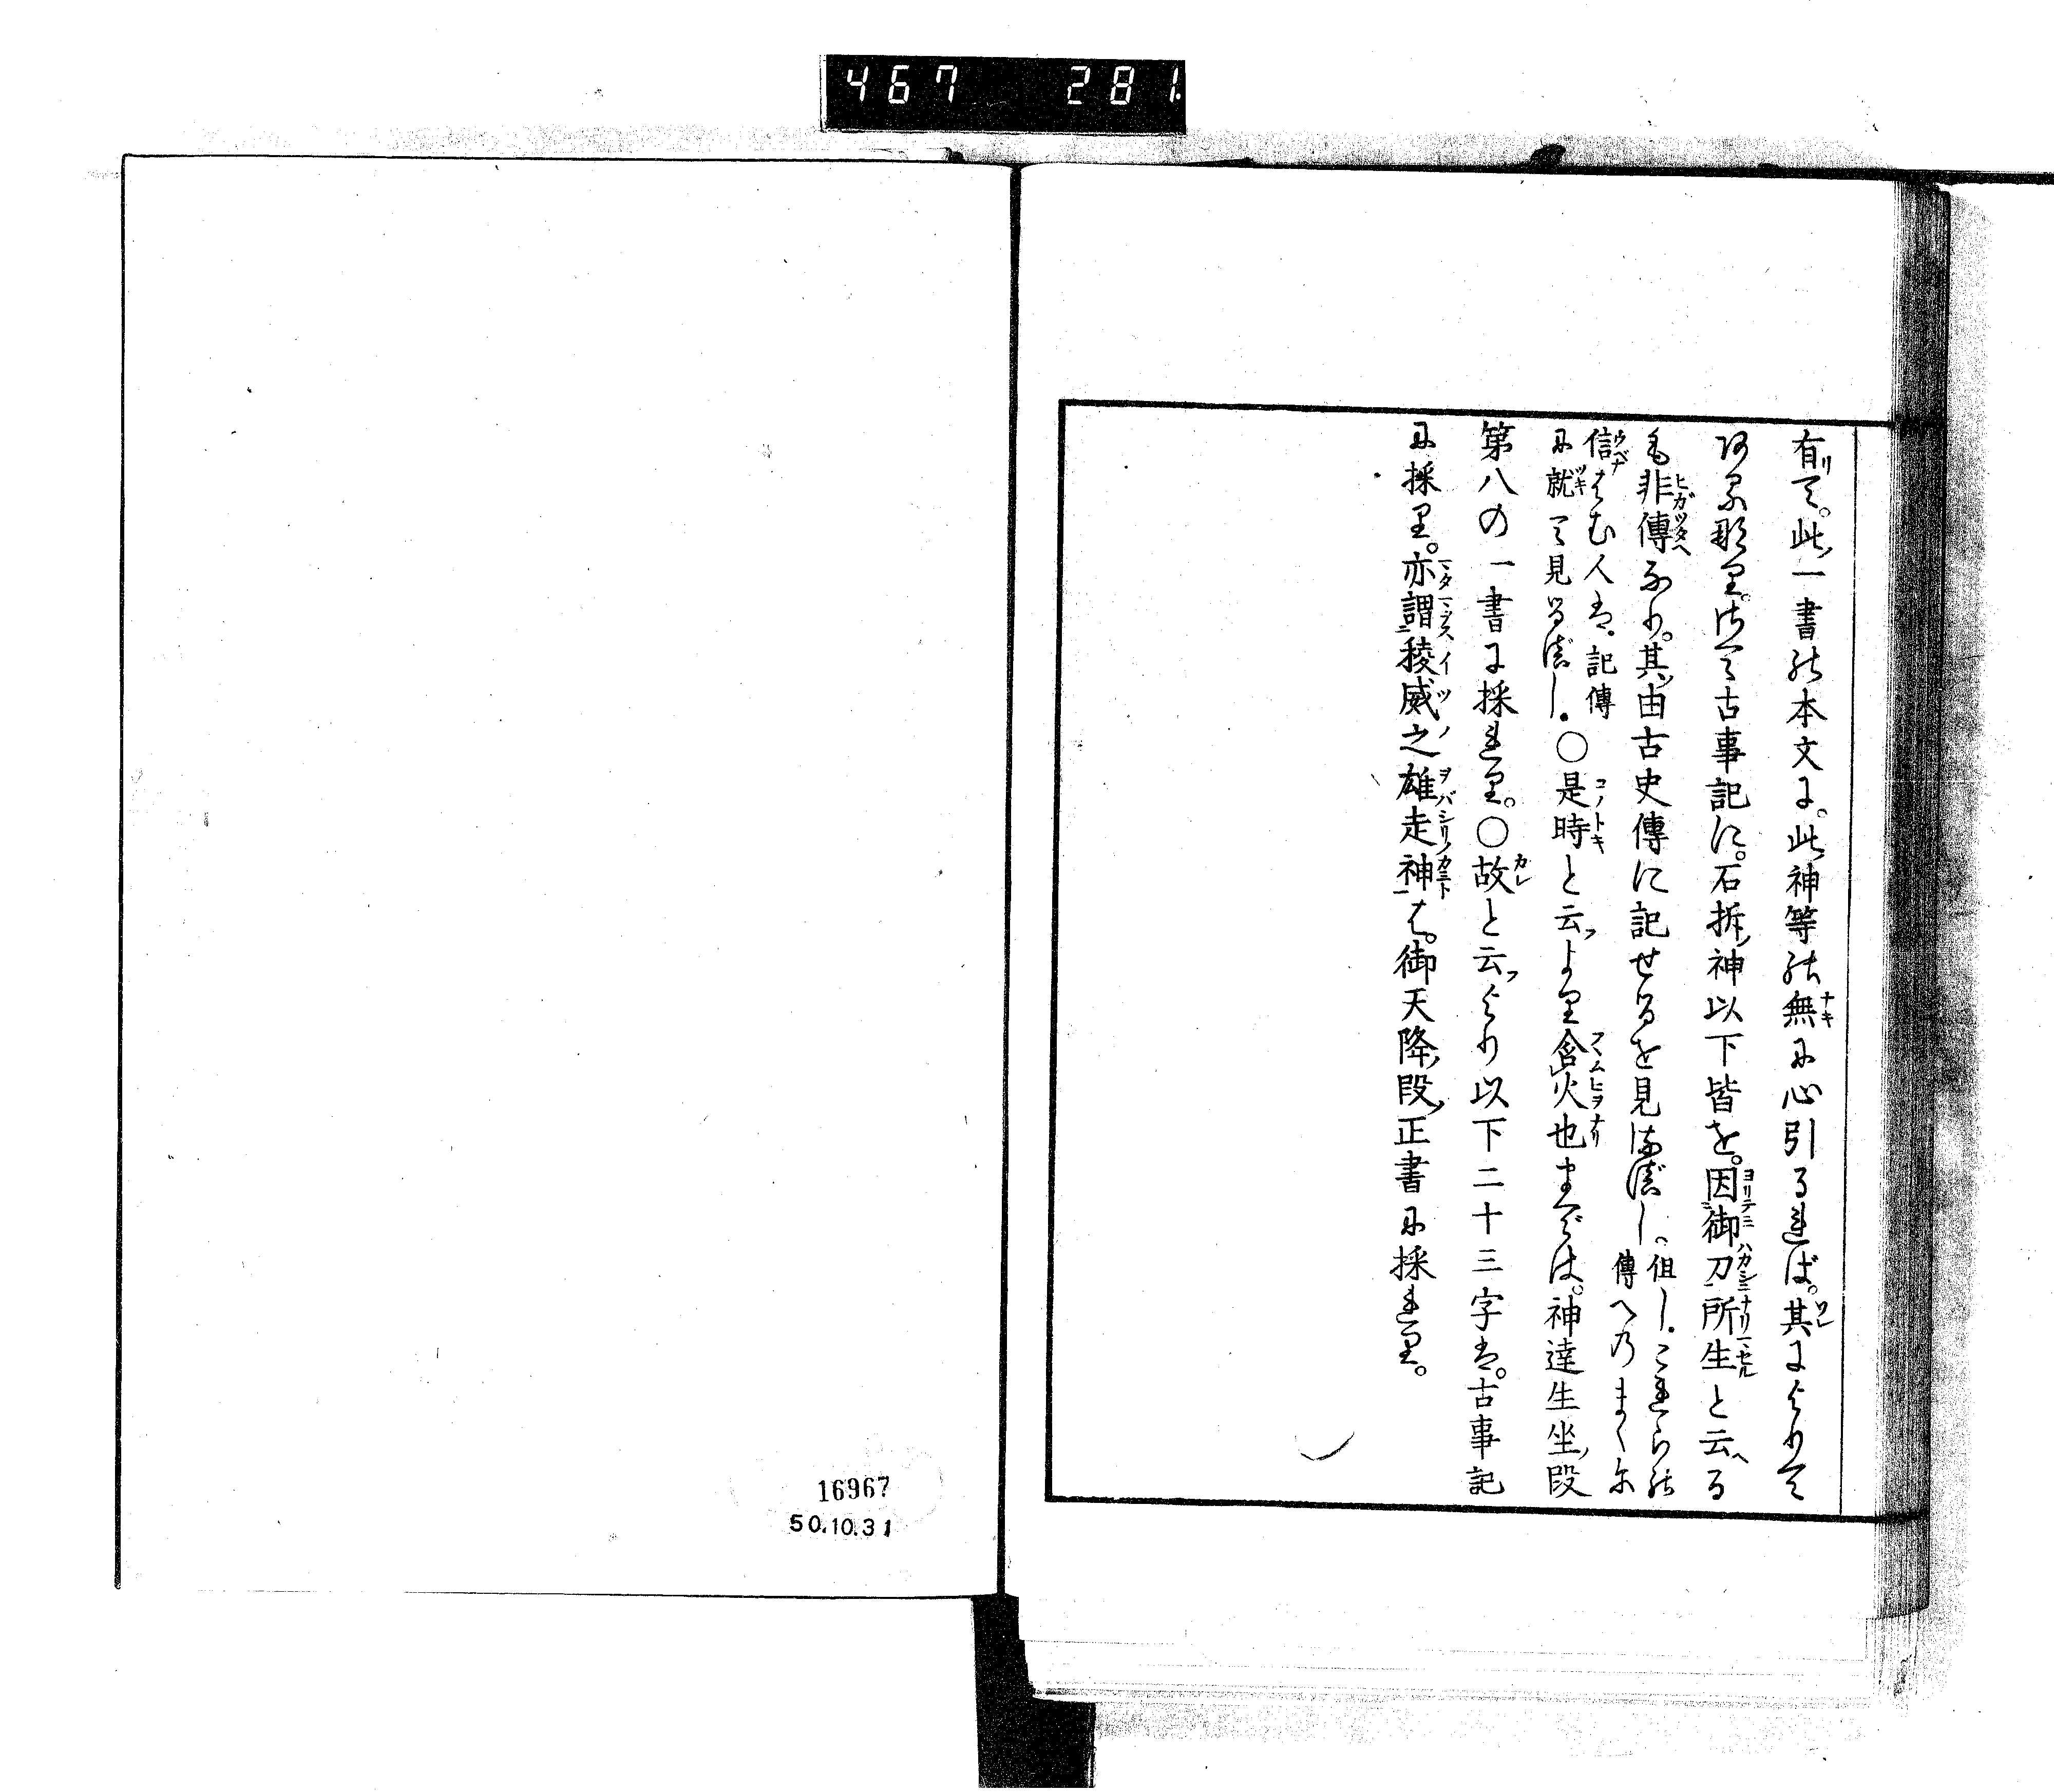 467 281
有て。此一書の本文に。此神等の無に心引るれば。其によりて
阿る那り。さて古事記に。石拆神以下皆を。因御刀所生と云る
も非傳なり。其由古史傳に記せるを見るべし。但し.これらの
傳へのまゝに
信はむ人は.記傳
に就て見るべし.〇是時と云より含火也までは。神達生坐段
第八の一書に採れり。〇故と云より以下二十三字は。古事記
に採り。亦謂稜威之雄走神は。御天降段正書に採れり。
16967
50.10.31